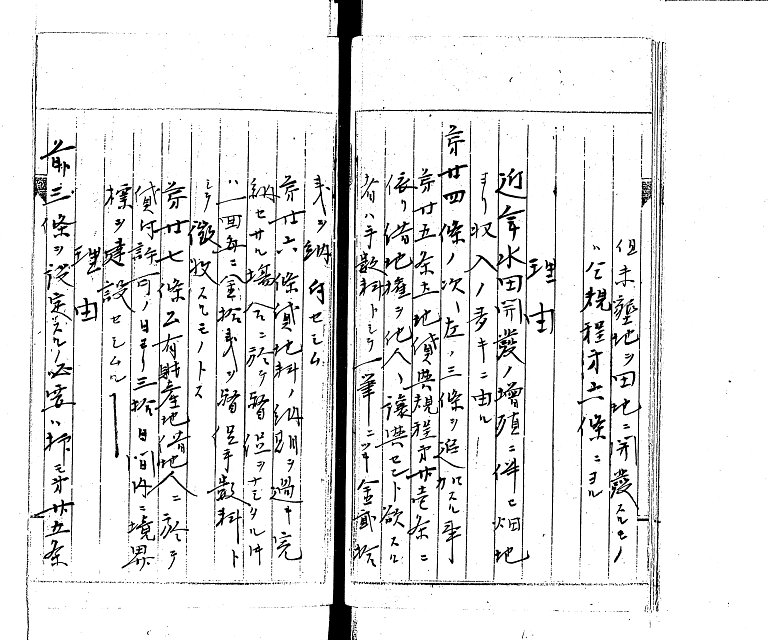 但未墾地ヲ田地ニ開發スルモノ
ハ仝規程第二條ニヨル
理由
近年水田開發ノ増殖ニ伴セ畑地
ヨリ収入ノ多キニ由ル
第廿四條ノ次ヘ左ノ三條ヲ追加スル事
第廿五条土地貸與規程第廿壱条ニ
依リ借地権ヲ他人ヘ譲與セント欲スル
者ハ手數料トシテ一筆ニツキ金貳拾
戔ヲ納付セシム
第廿六條貸地料ノ納期ヲ過キ完
納セサル場合ニ於テ督促ヲナシタル時
ハ一回毎ニ金拾戔ヲ督促手數料ト
シテ徴收スルモノトス
第廿七條公有財産地借地人ニ於テ
貸付許可ノ日ヨリ三拾日間内ニ境界
標ヲ建設セシムル
理由
前三條ヲ設定スルノ必要ハ第廿五条